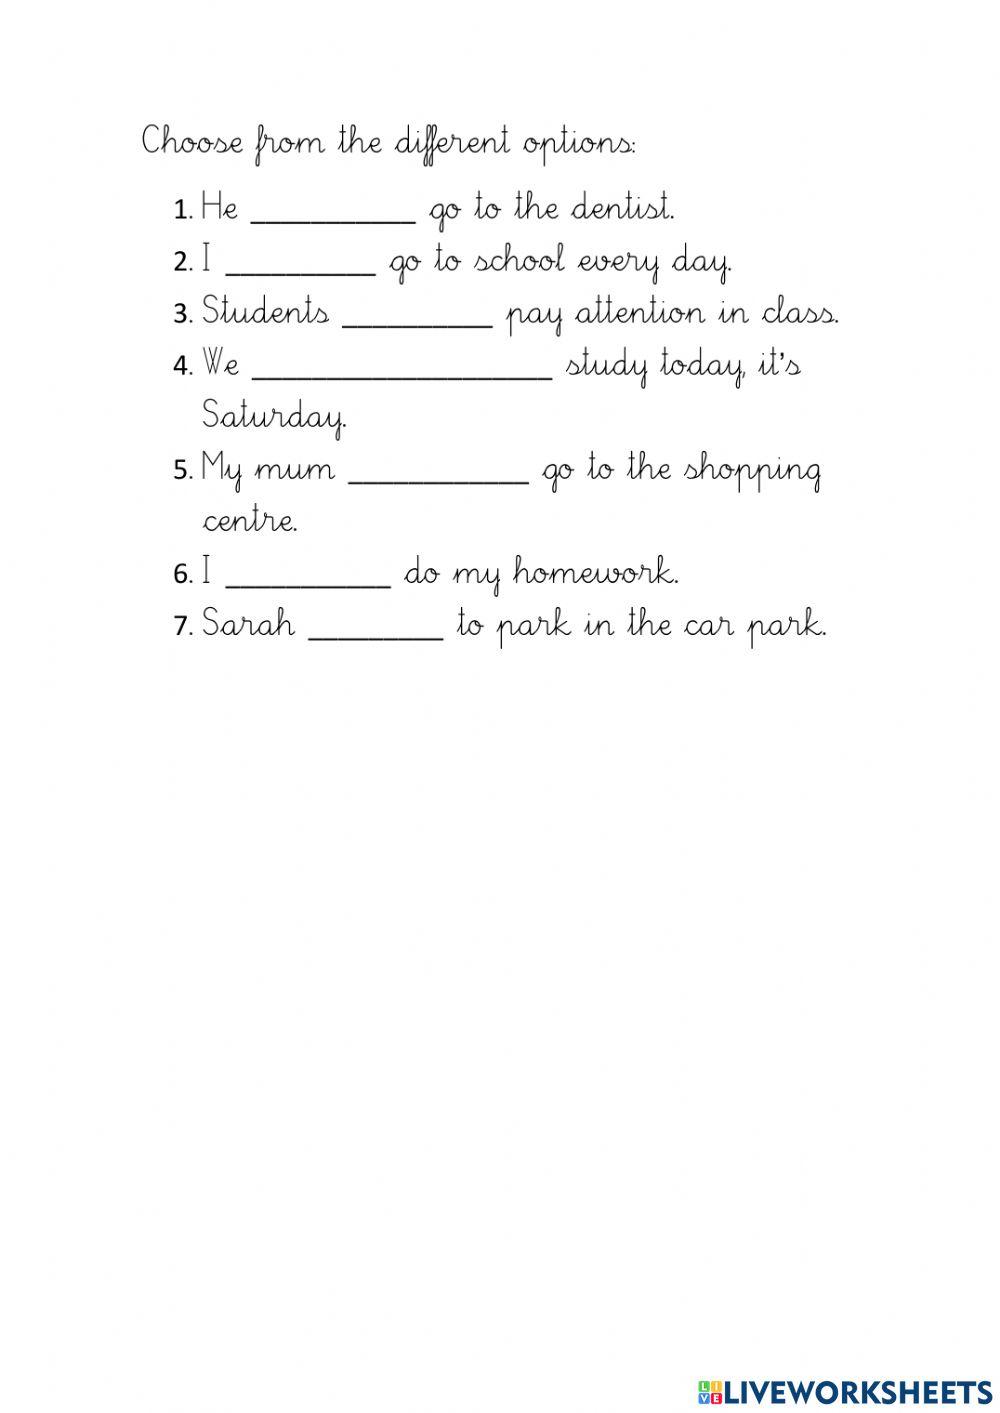 Choose from the different options:
1. He ___________ go to the dentist.
2. I __________ go to school every day.
3. Students __________ pay attention in class.
4. We ____________________ study today, it's
Saturday.
5. My mum ____________ go to the shopping
centre.
6. I ___________ do my homework.
7. Sarah _________ to park in the car park.
LIVE LIVEWORKSHEETS